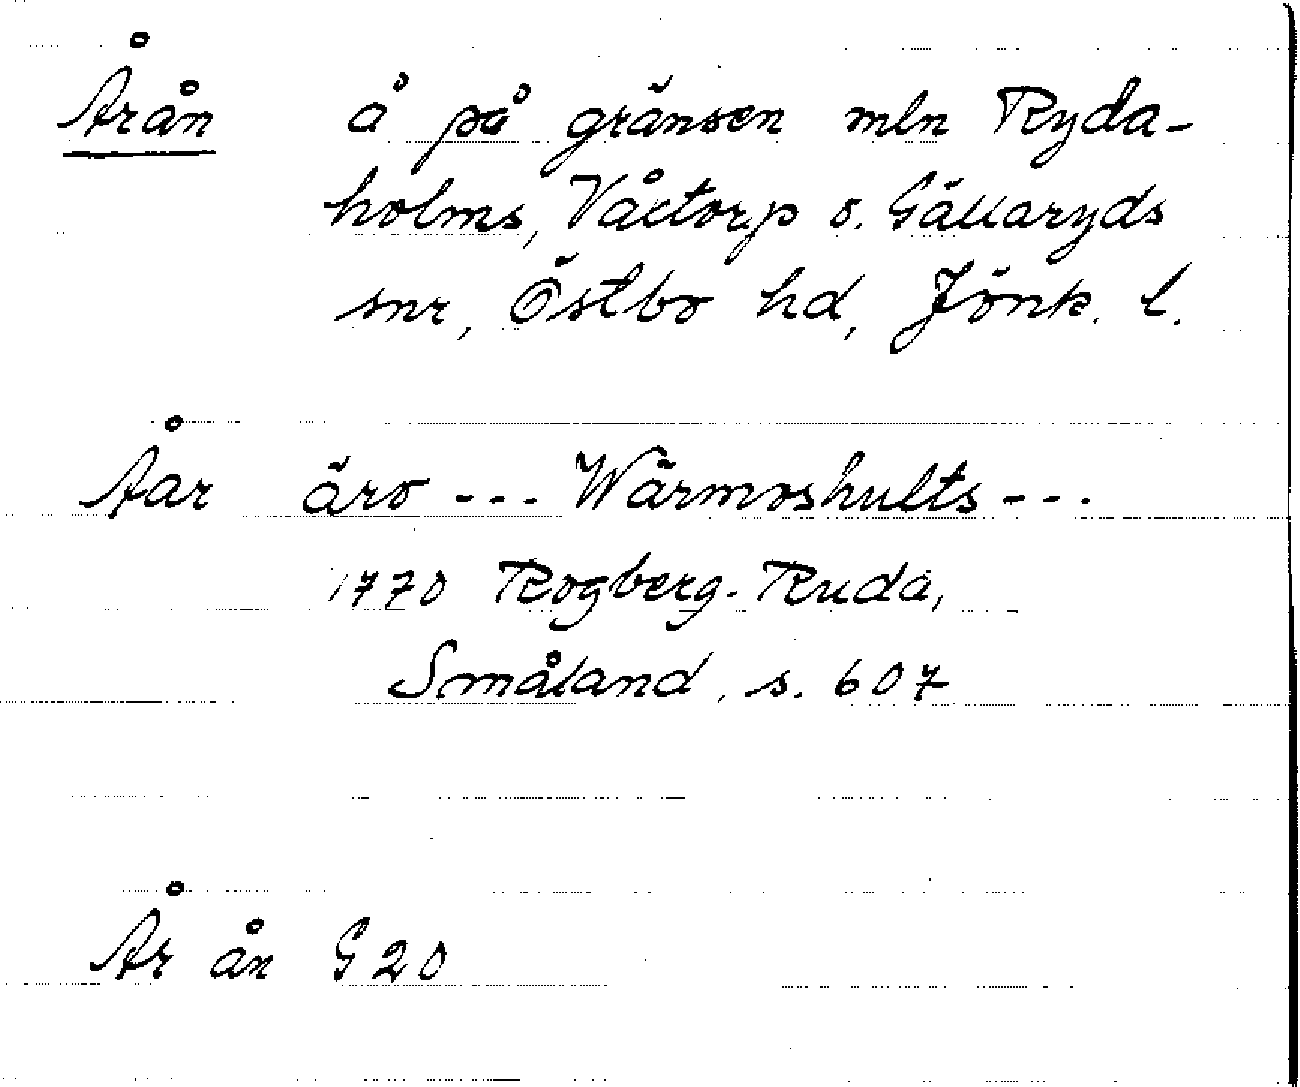 Årån å på gränsen mln Ryda-
holms, Våctorp o. Gällaryds
snr, Östbo hd, Jönk. l.
Åar äro --- Wärmoshults ---
1770 Rogberg-Ruda,
Småland, s. 607
År ån G20